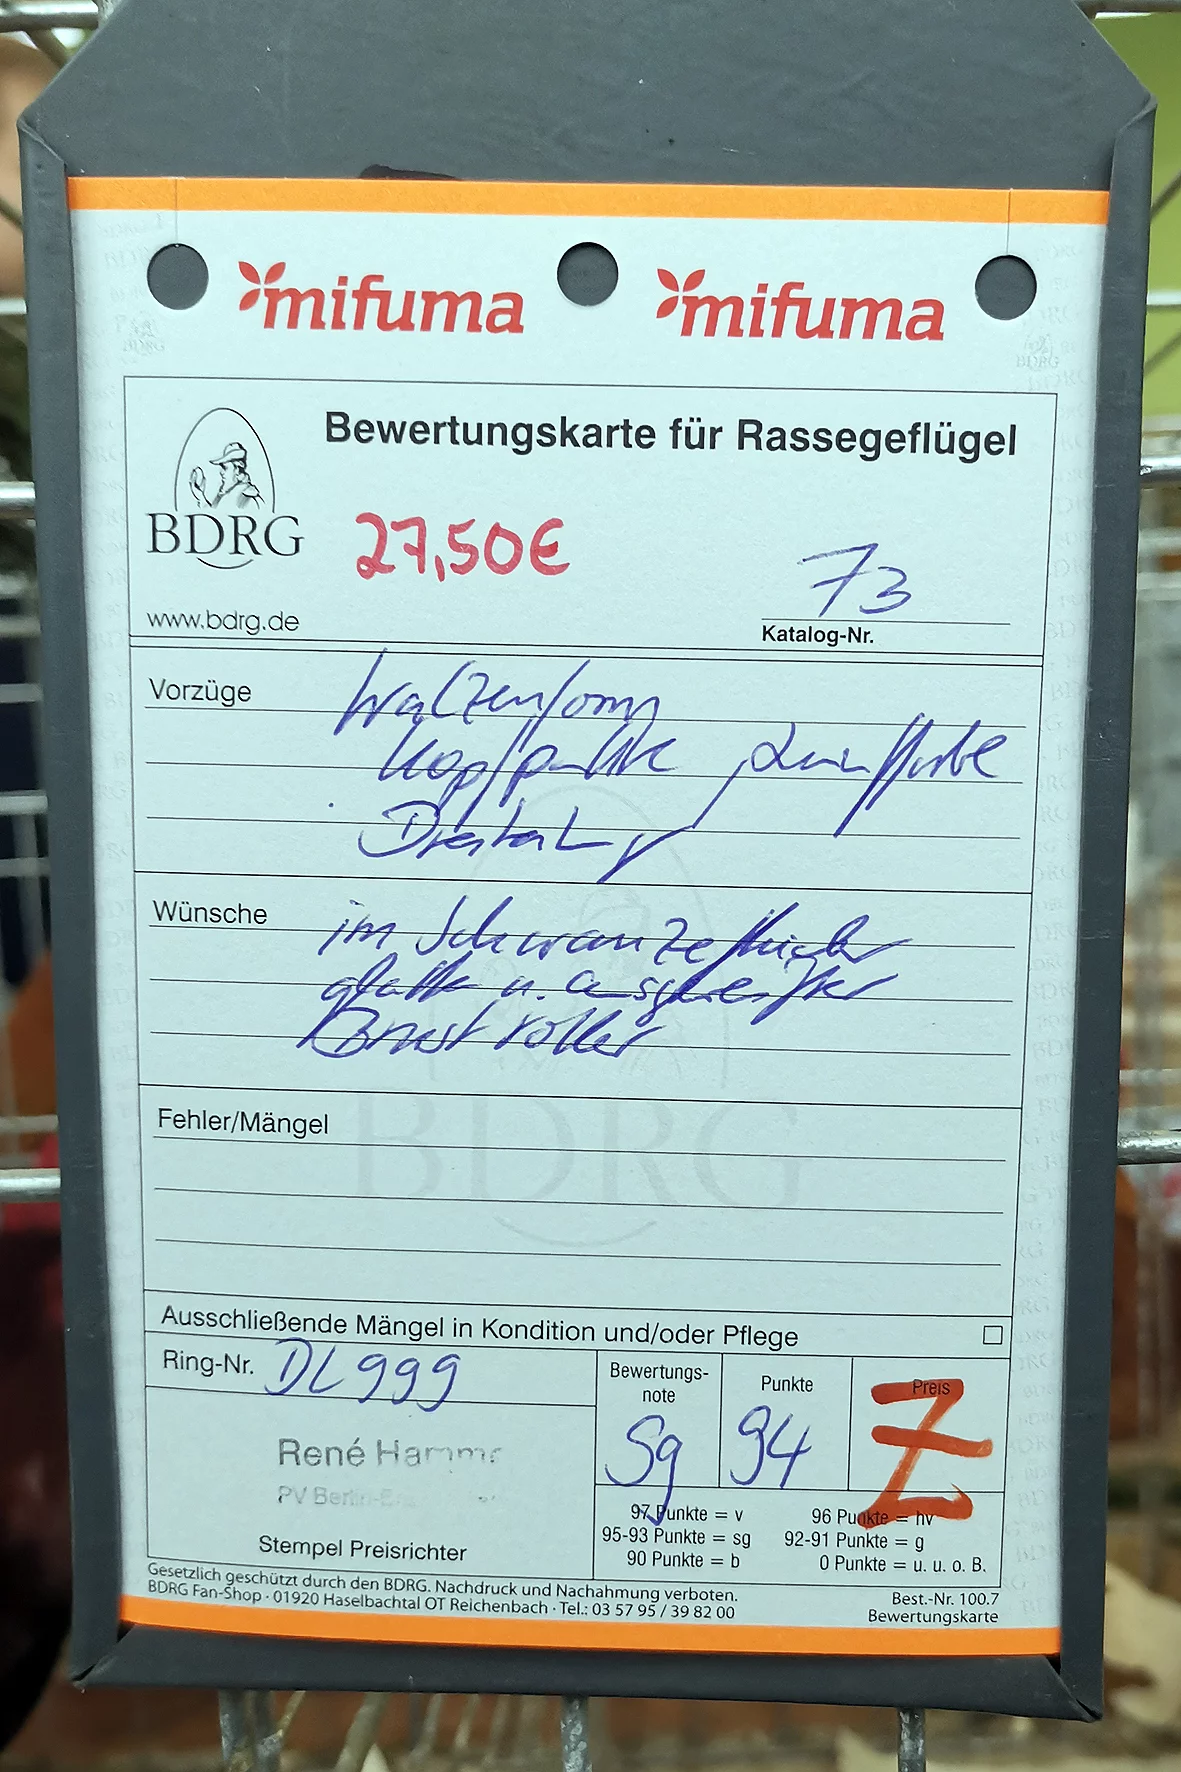 mifuma mifuma
Bewertungskarte für Rassegeflügel
BDRG
27,50€
73
www.bdrg.de
Katalog-Nr.
Vorzüge
Walzenform
Kopfpunkte,
Wünsche
im Schwanze
glatte u.
Brust voller
BDRG
Fehler/Mängel
Ausschließende Mängel in Kondition und/oder Pflege
Ring-Nr. DL 999
Bewertungs-
note
Punkte
Preis
Sg 94 Z
René
PV Berlin-
Stempel Preisrichter
97 Punkte = v 96 Punkte = hv
95-93 Punkte = sg 92-91 Punkte = g
90 Punkte = b 0 Punkte = u. u. o. B.
Gesetzlich geschützt durch den BDRG. Nachdruck und Nachahmung verboten.
BDRG Fan-Shop · 01920 Haselbachtal OT Reichenbach · Tel.: 03 57 95 / 39 82 00
Best.-Nr. 100.7
Bewertungskarte